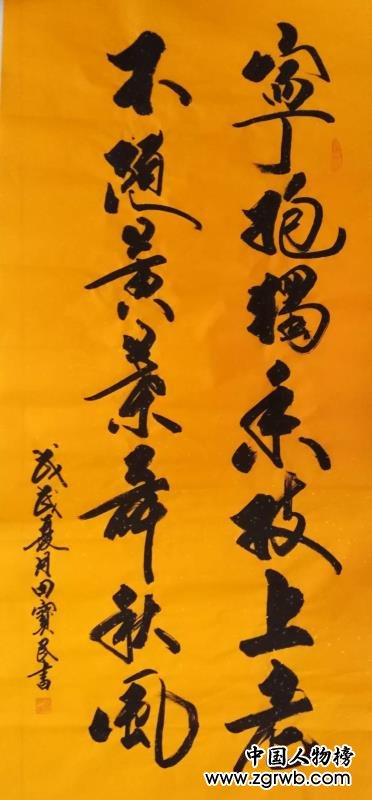 寧抱獨香枝上老
不隨黃葉舞秋風
戊戌夏月田寶民書
中国人物榜
www.zgrwb.com